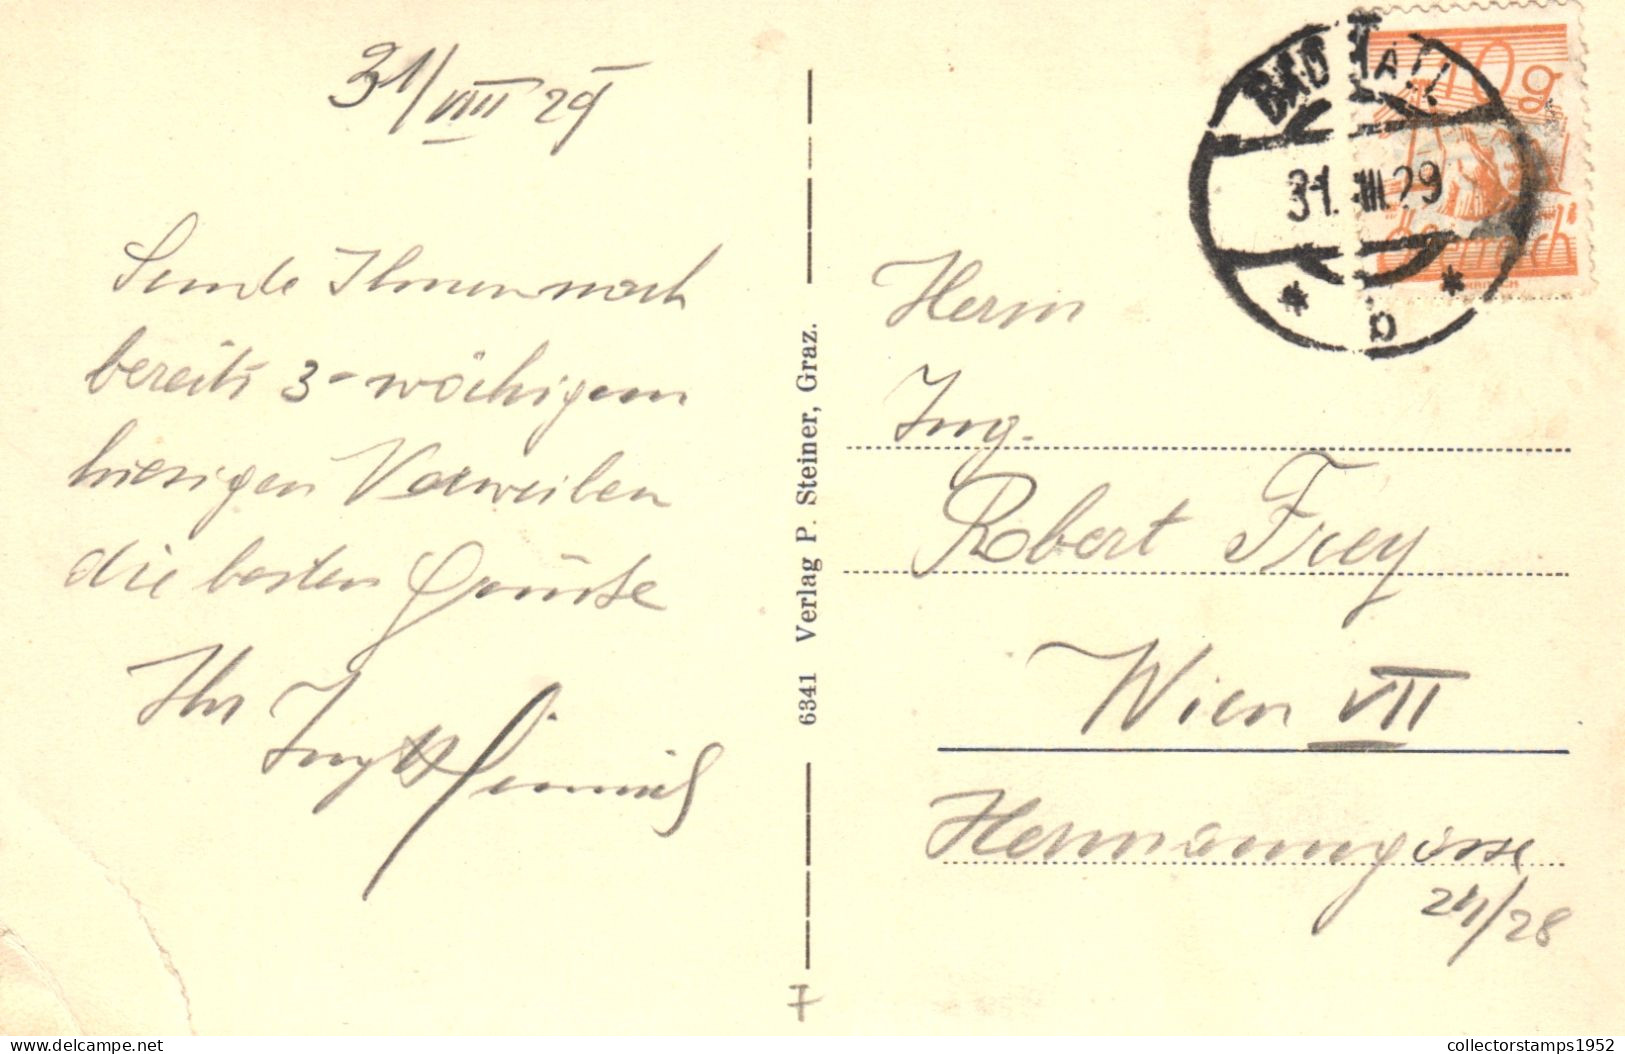 31/VIII 29
Sende Ihnen nach
bereits 3-wöchigem
hiesigen Verweilen
die besten Grüsse
Ihr Ing
6341 Verlag P. Steiner, Graz.
BAD HALL
31. VIII. 29
* b *
10g
Österreich
Herrn
Ing.
Robert Frey
Wien VII
Hermanngasse
24/28
7
www.delcampe.net
collectorstamps1952